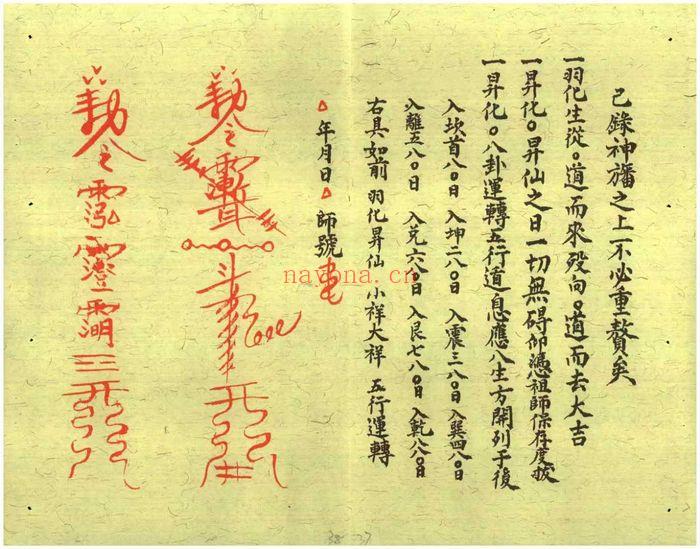 已錄神旛之上不必重贅矣
一羽化生從〇道而來歿向〇道而去大吉
一昇化〇昇仙之日一切無碍仰憑祖師保存度拔
一昇化〇八卦運轉五行道息應八生方開列于後
入坎首八〇日 入坤二八〇日 入震三八〇日 入巽四八〇日
入離五八〇日 入兑六八〇日 入艮七八〇日 入乾八八〇日
右具如前 羽化昇仙 小祥大祥 五行運轉
△年月日△師號
勅令
勅令
nayona.cn
38 37